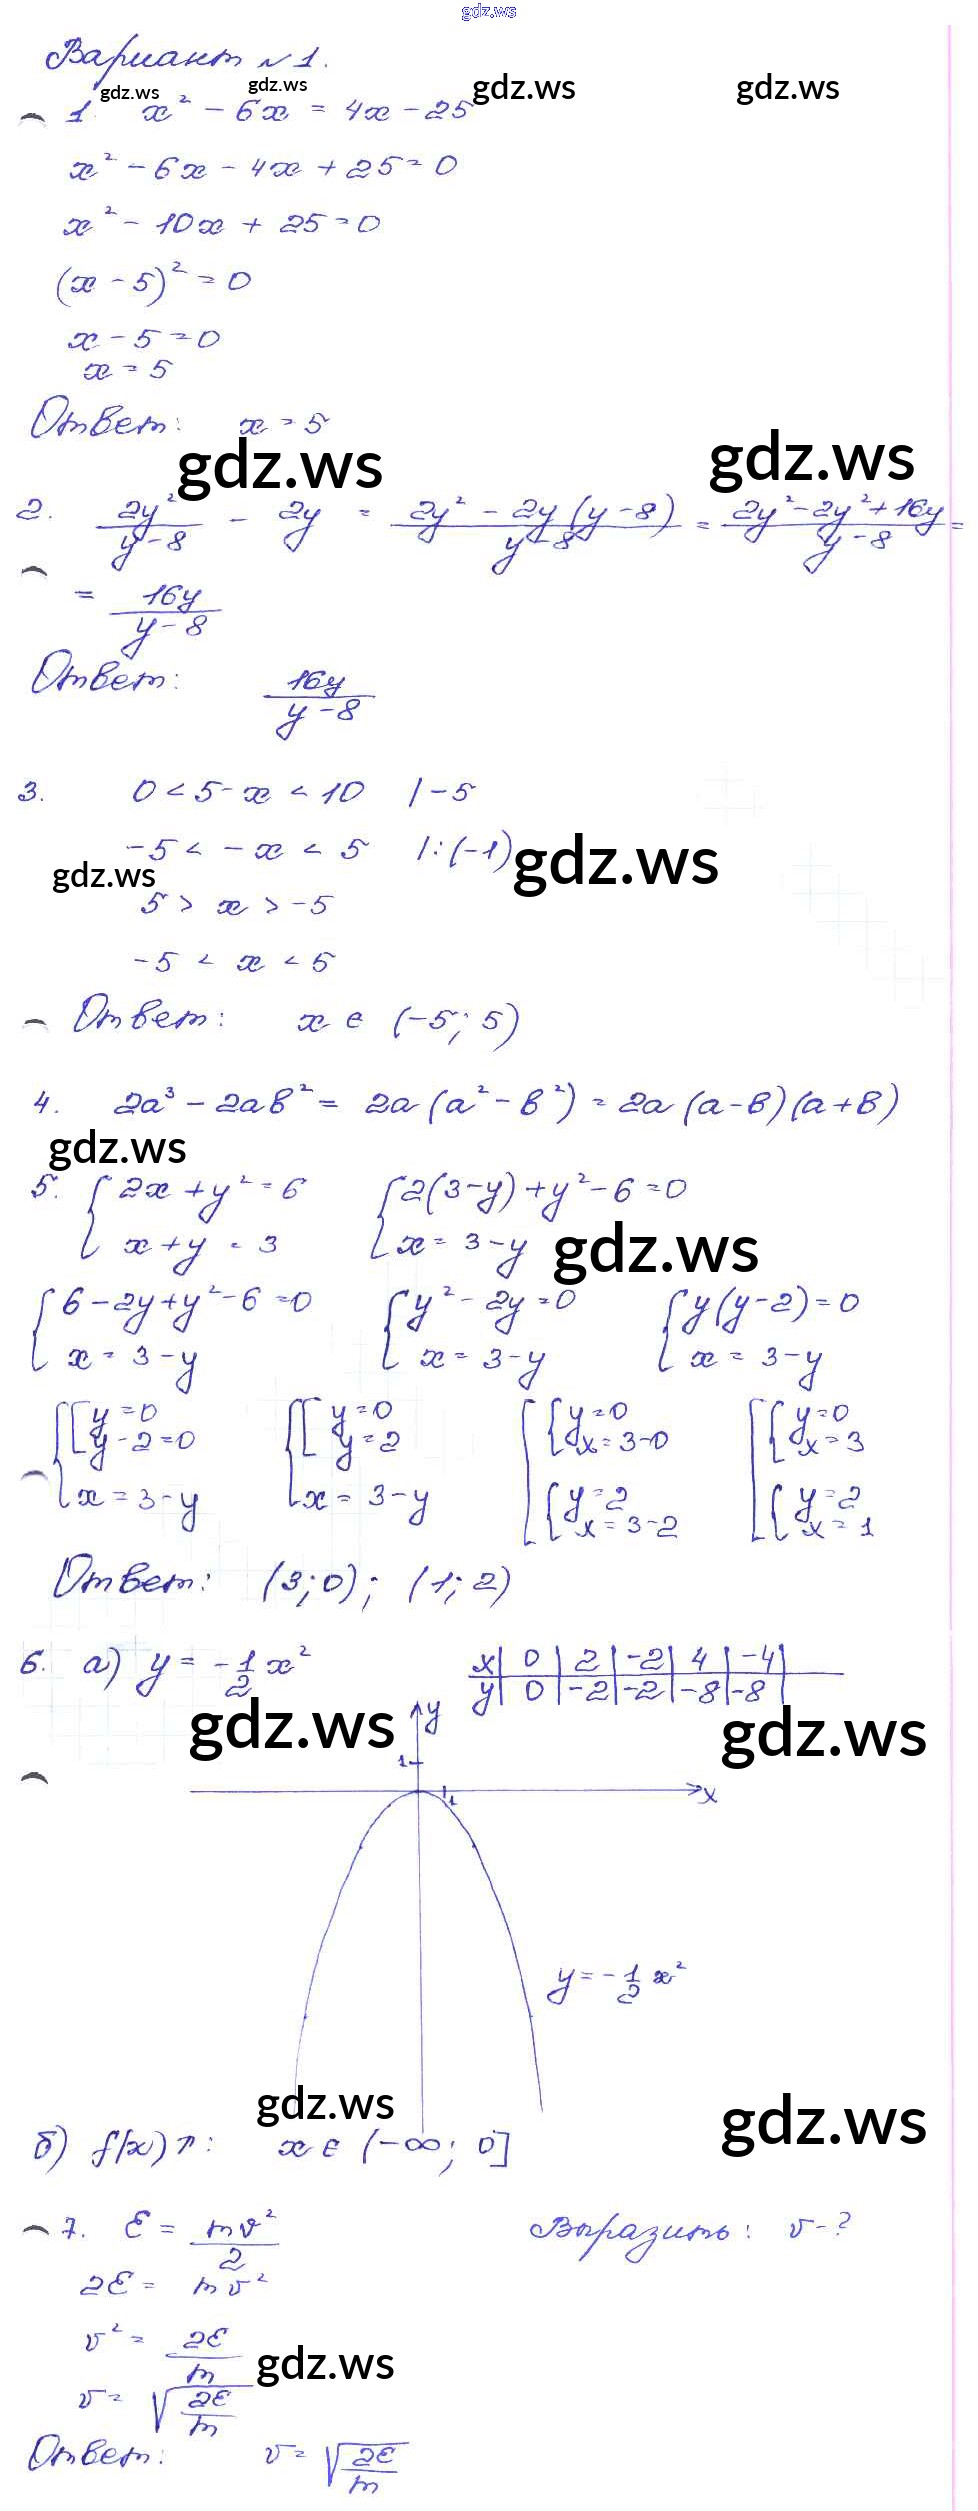 gdz.ws
Вариант №1.
gdz.ws gdz.ws gdz.ws gdz.ws
1. x² - 6x = 4x - 25
x² - 6x - 4x + 25 = 0
x² - 10x + 25 = 0
(x - 5)² = 0
x - 5 = 0
x = 5
Ответ: x = 5
gdz.ws gdz.ws
2. 2y²/(y - 8) - 2y = (2y² - 2y(y - 8))/(y - 8) = (2y² - 2y² + 16y)/(y - 8) =
= 16y/(y - 8)
Ответ: 16y/(y - 8)
3. 0 < 5 - x < 10 | - 5
-5 < -x < 5 | : (-1)
gdz.ws gdz.ws
5 > x > -5
-5 < x < 5
Ответ: x ∈ (-5; 5)
4. 2a³ - 2ab² = 2a(a² - b²) = 2a(a - b)(a + b)
gdz.ws
5. { 2x + y² = 6 { 2(3 - y) + y² - 6 = 0
x + y = 3 x = 3 - y
gdz.ws
{ 6 - 2y + y² - 6 = 0 { y² - 2y = 0 { y(y - 2) = 0
x = 3 - y x = 3 - y x = 3 - y
{ [ y = 0 { [ y = 0 [ { y = 0 [ { y = 0
y - 2 = 0 y = 2 x = 3 - 0 x = 3
x = 3 - y x = 3 - y { y = 2 { y = 2
x = 3 - 2 x = 1
Ответ: (3; 0); (1; 2)
6. а) y = -1/2 x²
x | 0 | 2 | -2 | 4 | -4 |
y | 0 | -2 | -2 | -8 | -8 |
gdz.ws gdz.ws
y
1
1 x
y = -1/2 x²
gdz.ws gdz.ws
б) f(x)↑: x ∈ (-∞; 0]
7. E = mv²/2 Выразить: v - ?
2E = mv²
v² = 2E/m
gdz.ws
v = √(2E/m)
Ответ: v = √(2E/m)